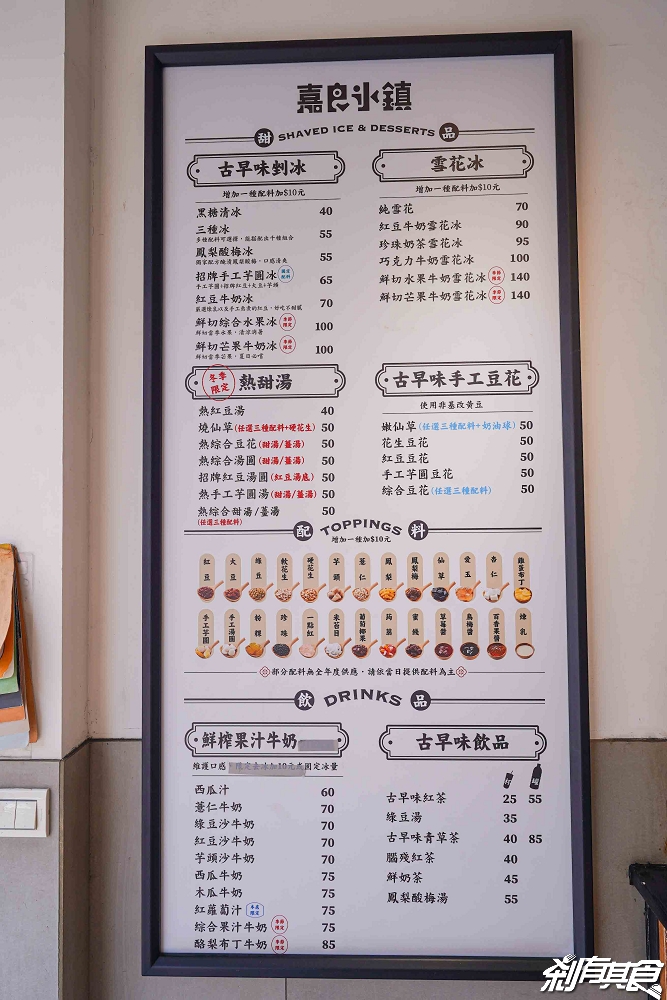 嘉良冰鎮
甜 SHAVED ICE & DESSERTS 品
古早味剉冰
增加一種配料加$10元
黑糖清冰 40
三種冰 55
多種配料可選擇，能搭配出千種組合
鳳梨酸梅冰 55
獨家配方醃漬鳳梨酸梅，口感清爽
招牌手工芋圓冰 固定配料 65
手工芋圓+招牌紅豆+大豆+芋頭
紅豆牛奶冰 70
鮮切綜合水果冰 季節限定 100
鮮切當季水果，清涼消暑
鮮切芒果牛奶冰 季節限定 100
鮮切當季芒果，夏日必嚐
雪花冰
增加一種配料加$10元
純雪花 70
紅豆牛奶雪花冰 90
珍珠奶茶雪花冰 95
巧克力牛奶雪花冰 100
鮮切水果牛奶雪花冰 季節限定 140
鮮切芒果牛奶雪花冰 季節限定 140
冬季限定 熱甜湯
熱紅豆湯 40
燒仙草(任選三種配料+硬花生) 50
熱綜合豆花(甜湯/薑湯) 50
熱綜合湯圓(甜湯/薑湯) 50
招牌紅豆湯圓(紅豆湯底) 50
熱手工芋圓湯(甜湯/薑湯) 50
熱綜合甜湯/薑湯 50
(任選三種配料)
古早味手工豆花
使用非基改黃豆
嫩仙草(任選三種配料+奶油球) 50
花生豆花 50
紅豆豆花 50
手工芋圓豆花 50
綜合豆花(任選三種配料) 50
配 TOPPINGS 料
增加一種加$10元
紅豆 大豆 綠豆 軟花生 硬花生 芋頭 薏仁 鳳梨 鳳梨梅 仙草 愛玉 杏仁 雞蛋布丁
手工芋圓 手工湯圓 粉粿 珍珠 一點紅 米苔目 葡萄椰果 蒟蒻 蜜餞 草莓醬 烏梅醬 百香果醬 煉乳
部分配料無全年度供應，請依當日提供配料為主
飲 DRINKS 品
鮮榨果汁牛奶
維護口感
固定冰量
西瓜汁 60
薏仁牛奶 70
綠豆沙牛奶 70
紅豆沙牛奶 70
芋頭沙牛奶 70
西瓜牛奶 75
木瓜牛奶 75
紅蘿蔔汁 75
綜合果汁牛奶 季節限定 75
酪梨布丁牛奶 季節限定 85
古早味飲品
杯 罐
古早味紅茶 25 55
綠豆湯 35
古早味青草茶 40 85
腦殘紅茶 40
鮮奶茶 45
鳳梨酸梅湯 55
剎有其食